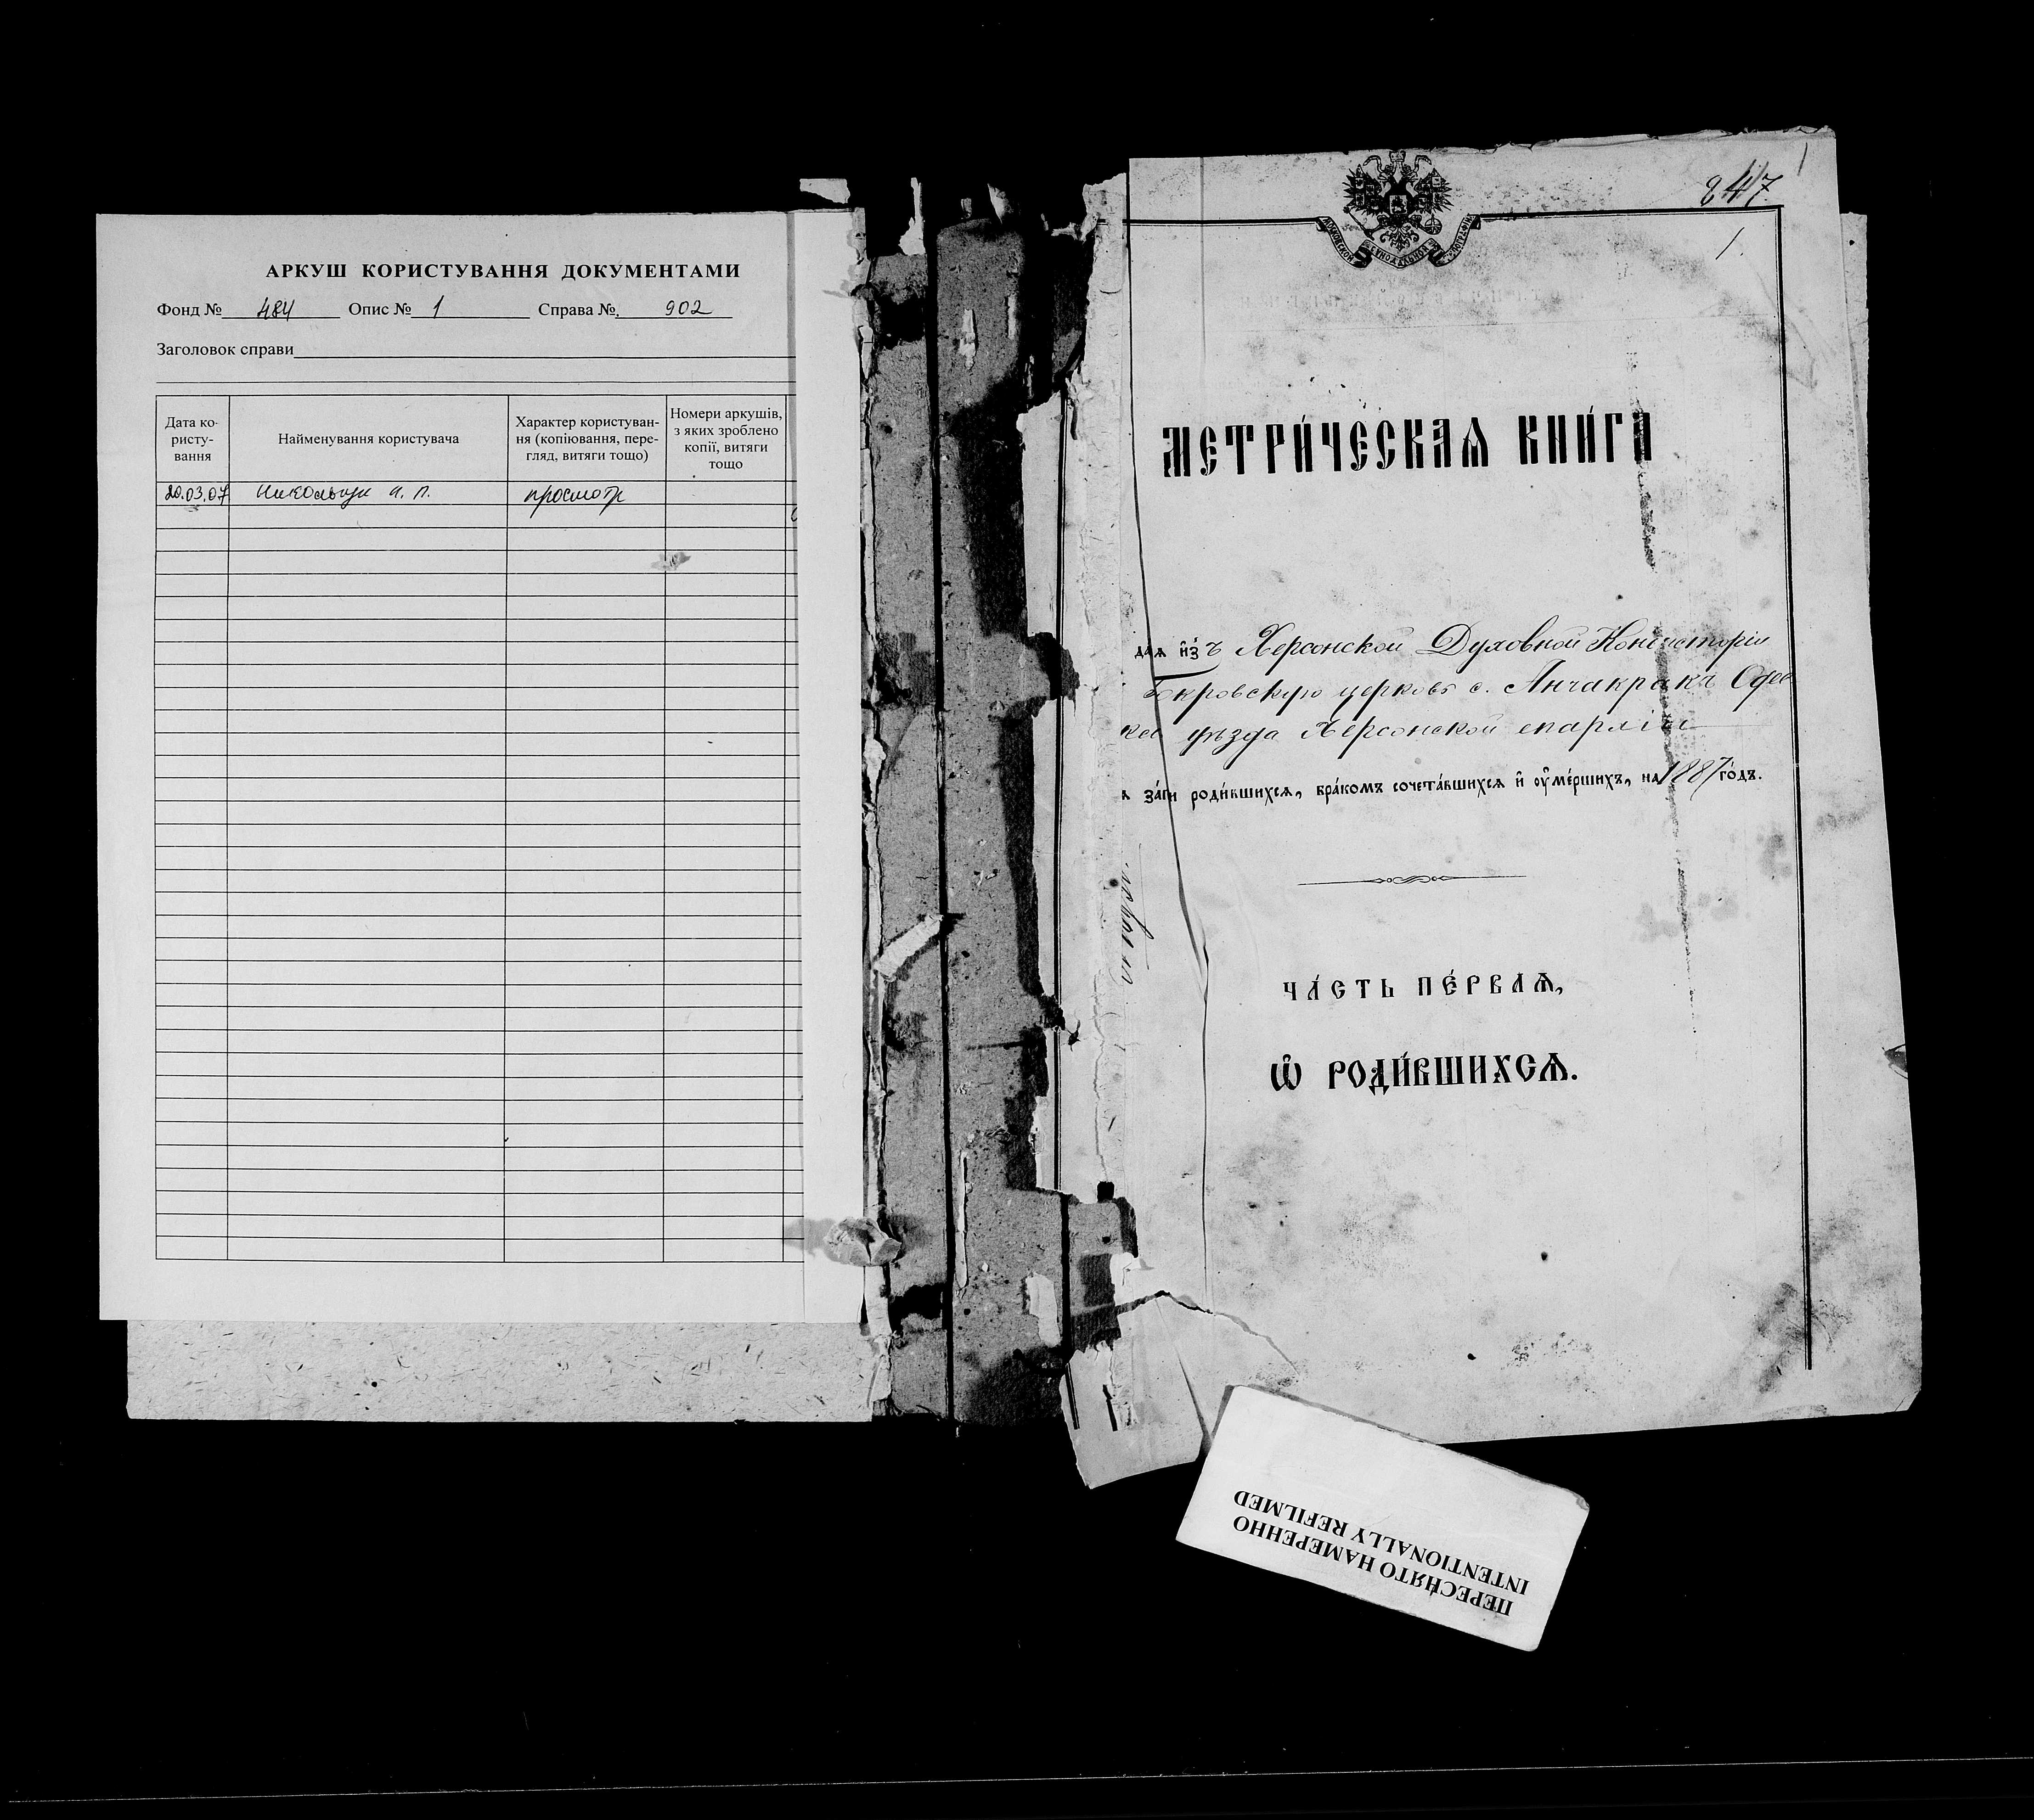 АРКУШ КОРИСТУВАННЯ ДОКУМЕНТАМИ
Фонд № 484 Опис № 1 Справа № 902
Заголовок справи
Дата ко-
ристу-
вання
Найменування користувача
Характер користуван-
ня (копіювання, пере-
гляд, витяги тощо)
Номери аркушів,
з яких зроблено
копії, витяги
тощо
20.03.07 просмотр
247
1.
МЕТРИ́ЧЕСКАѦ КНИ́ГА
даꙗ и҆зъ Херсонской Духовной Консисторіи
Покровскую церковь с. Анчакракъ Одес
уѣзда Херсонской епархіи
роди́вшихсѧ, бра́комъ сочета́вшихсѧ и҆ ᲂу҆ме́ршихъ, на 1887 го́дъ.
ЧА́СТЬ ПЕ́РВАѦ,
Ѽ РОДИ́ВШИХСѦ.
ПЕРЕСНЯТО НАМЕРЕННО
INTENTIONALLY REFILMED